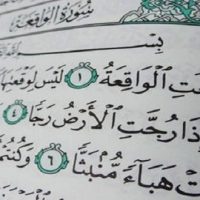 سُورَةُ الْوَاقِعَةِ
بِسْـ
ـتِ الْوَاقِعَةُ ١ لَيْسَ لِوَقْعَتِهَا
إِذَا رُجَّتِ الْأَرْضُ رَجًّا ٤
ـتْ هَبَاءً مُّنْبَثًّا ٦ وَكُنْتُمْ